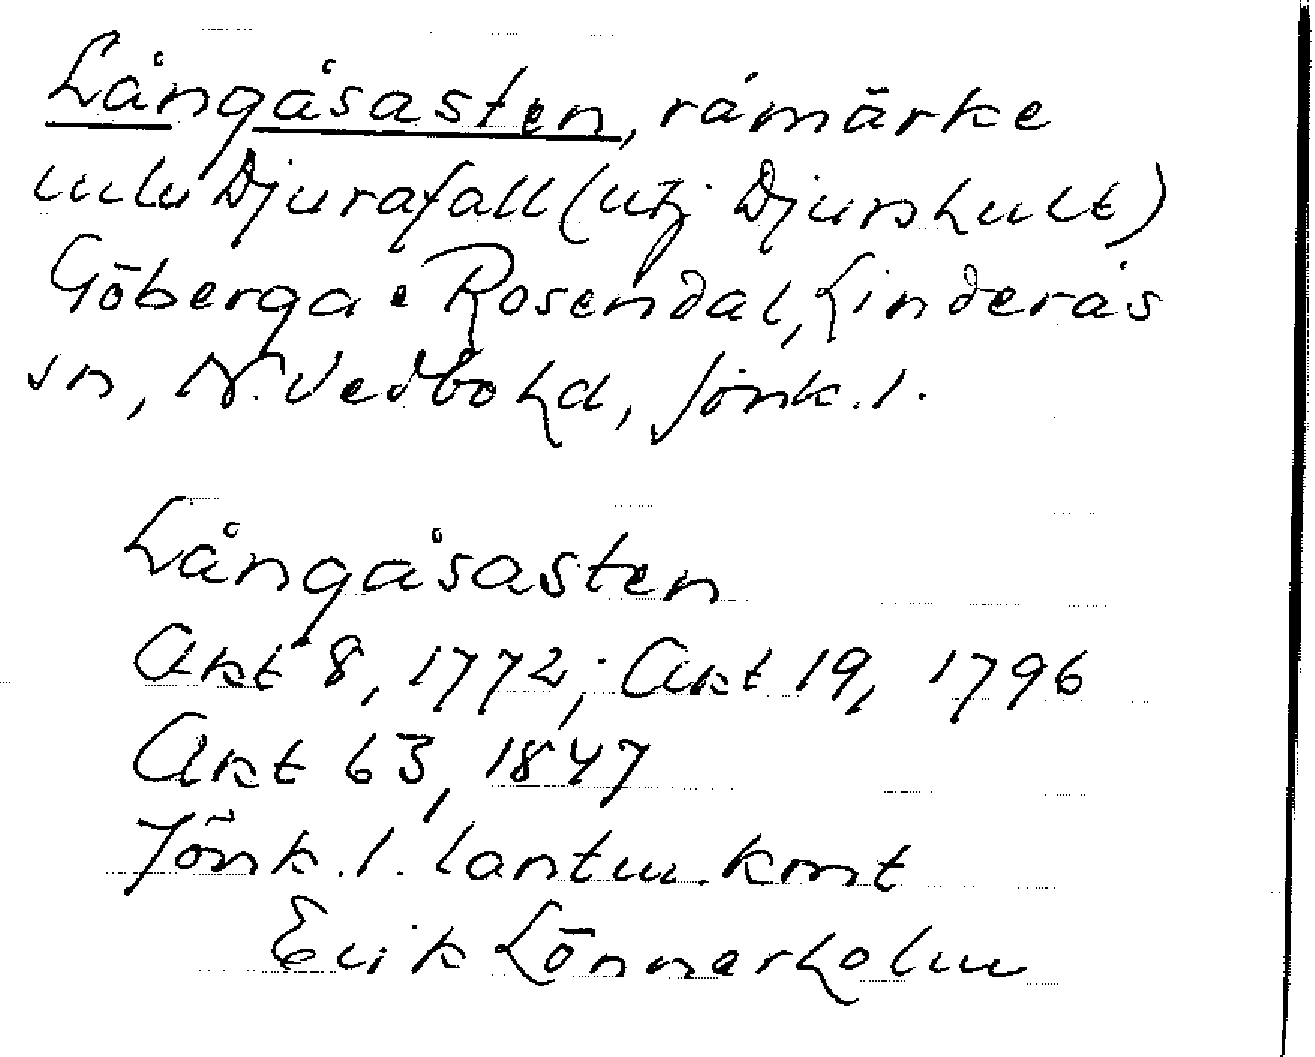 Långåsasten, råmärke
mlu Djurafall (utj Djurshult)
Göberga o Rosendal, Linderås
sn, N. Vedbo hd, Jönk. l.
Långåsasten
Akt 8, 1772; Akt 19, 1796
Akt 63, 1847
Jönk. l. lantm. kont
Erik Lönnerholm